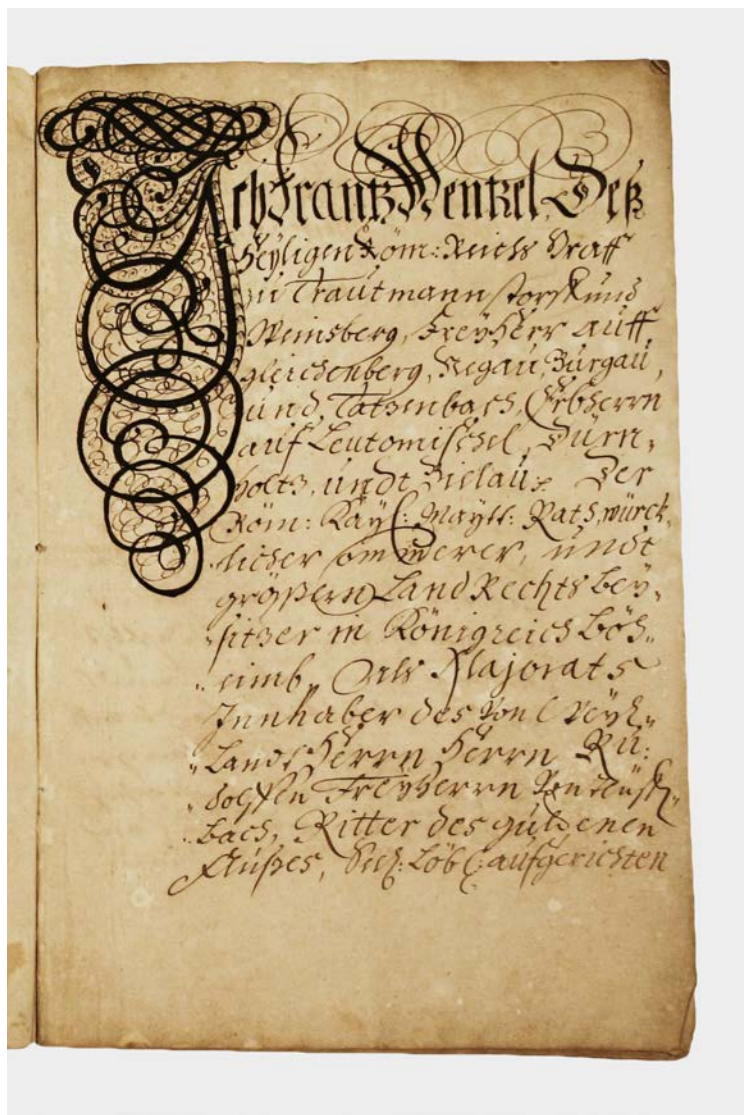 Ich Frantz Wentzel, Deß
Heyligen Röm: Reichs Graff
zu Trautmannstorff und
Weinsberg, Freyherr auff
gleichenberg, Negau, Burgau,
und Tatzenbach, Erbherrn
auf Leutomischel, Dürn„
holtz, undt
Röm: Kay: Maytt: Rath, würck„
licher Cam̄erer, undt
größern Land Rechts bey„
sitzer in Königreich Böh„
„eimb, Als Majorats
Innhaber des Von Weyl„
„Landt Herrn Herrn Ru:
dolffen Freyherrn Von
bach, Ritter des guldenen
Flußes, Seel: Löbl: aufgerichten